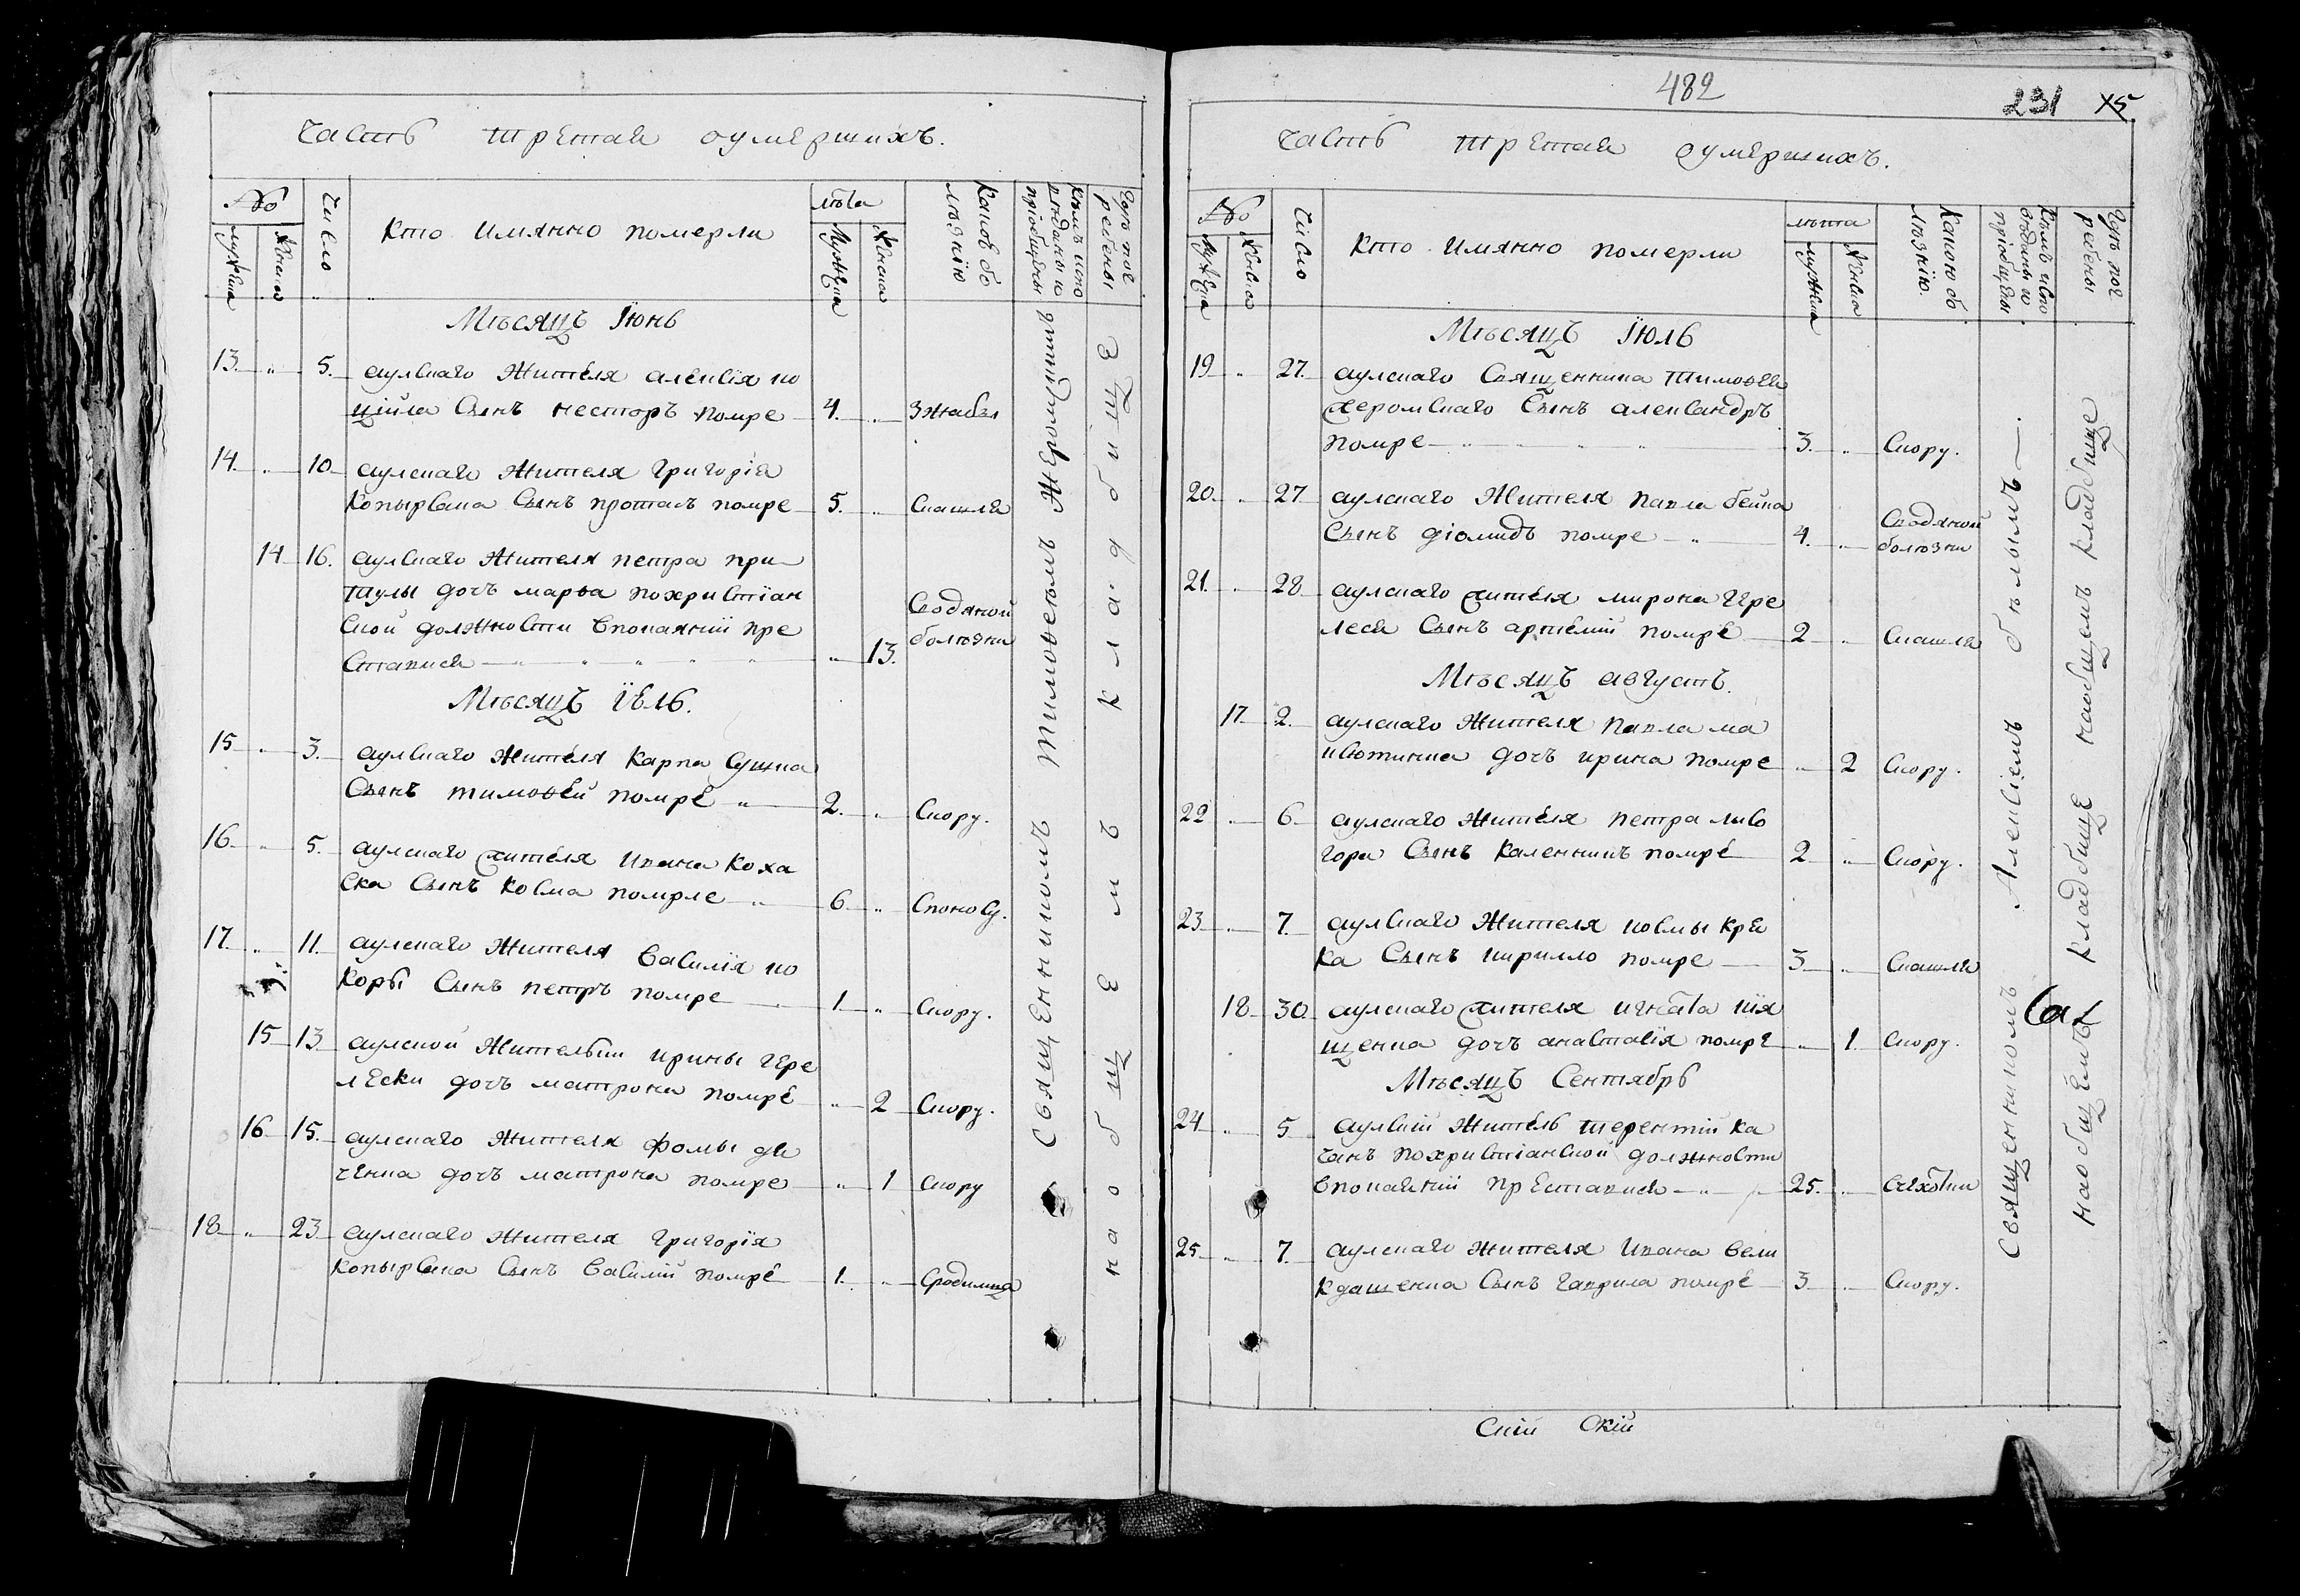 Часть третая оумершихъ.
№
Число
Кто имянно померли
лѣта
мужеска
женска
Мѣсяцъ Іюнь
13. „ 5. аулскаго жителя алексія ко
ційла сынъ несторъ помре 4. „ зжабы
14. „ 10. аулскаго жителя григорія
копырсака сынъ протасъ помре 5. „ Скашля
14 16. аулскаго жителя петра при
тулы дочъ марѳа похристіан
ской должности впокаяніи пре
ставися „ 13. Сводяной болѣзни
Мѣсяцъ Іюль.
15 „ 3. аулскаго жителя карпа сушка
сынъ тимоѳей помре 2. „ Скору.
16. „ 5. аулскаго жителя ивана коха
ска сынъ косма помрле 6. „ Спонosу.
17. „ 11. аулскаго жителя василія ко
коры сынъ петръ помре 1. „ Скору.
15 13 аулской жителки ирины гере
лески дочъ матрона помре „ 2 Скору.
16. 15. аулскаго жителя фомы дя
ченка дочъ матрона помре „ 1 Скору
18. „ 23 аулскаго жителя григорія
копырсака сынъ василій помре 1. „ Сродимца
Священникомъ Тимоѳеемъ Жеромскимъ
на обшемъ кладбитѣ
482
231 15
Часть третая оумершихъ.
№
Число
Кто имянно померли
лѣта
мужеска
женска
Какою болѣзнію.
Мѣсяцъ Іюль
19 „ 27. аулскаго священника тимоѳея
жеромскаго сынъ александръ
помре 3. „ Скору.
20. „ 27 аулскаго жителя павла бейка
сынъ діомидъ помре 4. „ Сводяной болѣзни
21. „ 28 аулскаго жителя мирона гере
леся сынъ артемій помре 2 „ Скашля
Мѣсяцъ августъ.
17. 2. аулскаго жителя павла ма
исютинка дочъ ирина помре „ 2 Скору.
22 „ 6. аулскаго жителя петра лиso
гора сынъ каленникъ помре 2 „ Скору.
23 „ 7 аулскаго жителя космы кре
ка сынъ кирилло помре 3. „ Скашля
18. 30. аулскаго жителя игната кія
щенка дочъ анастасія помре „ 1. Скору.
Мѣсяцъ Сентябрь
24 „ 5 аулскій житель терентій ка
чанъ похристіанской должности
впокаяніи преставися 25. „ Счахотки
25. „ 7. аулскаго жителя ивана вели
кдашенка сынъ гаврила помре 3 „ Скору.
Священникомъ Алексіемъ бѣлымъ
наобщемъ кладбище наобщемъ кладбище
Скій Окій